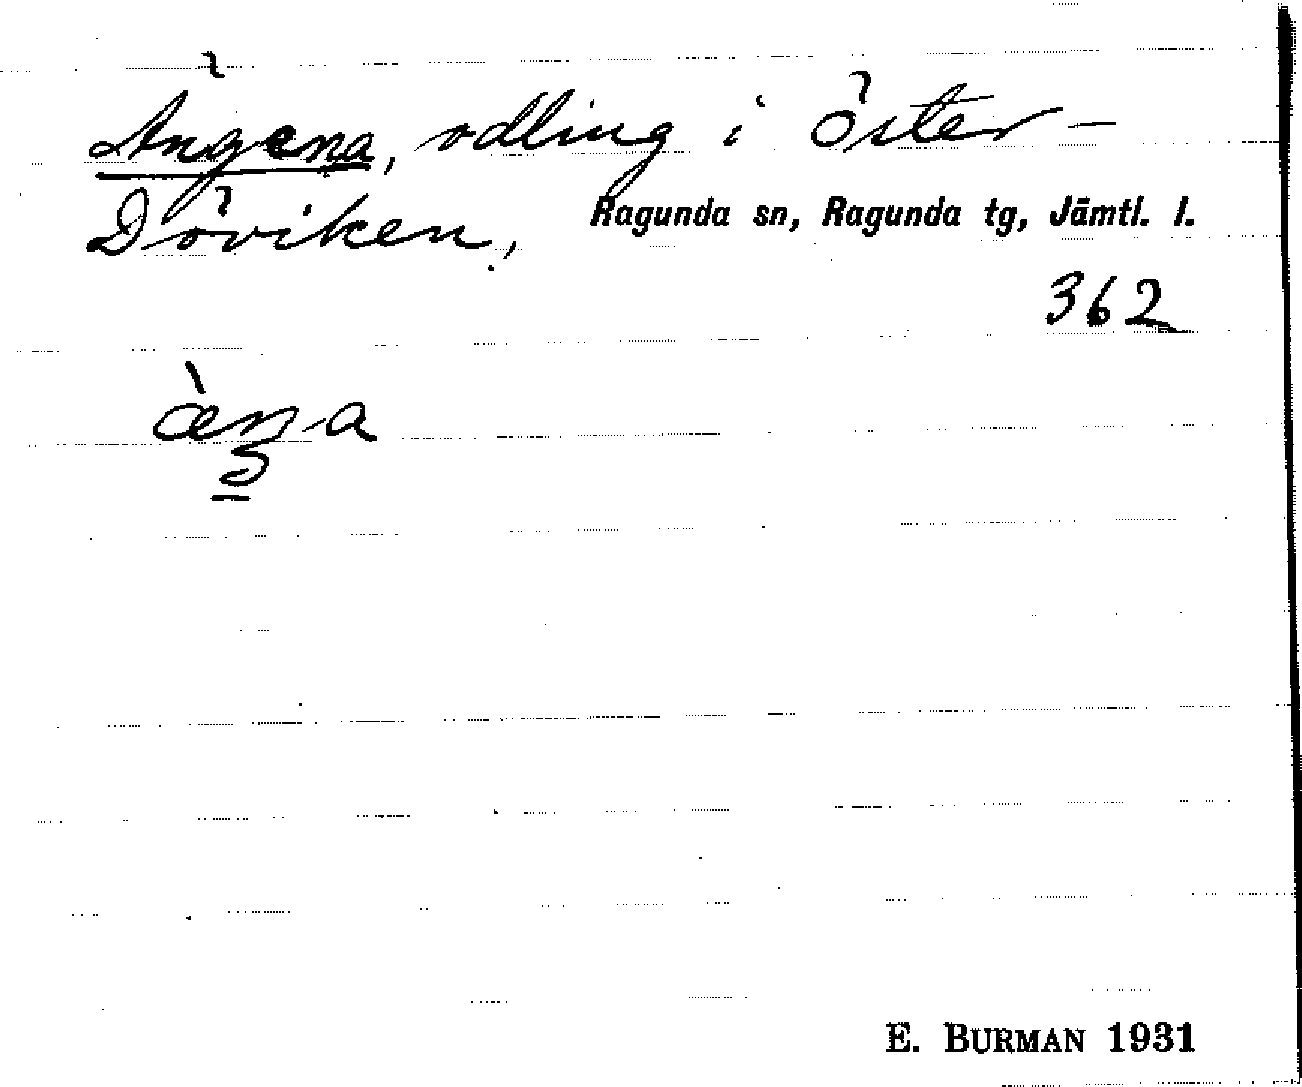 Ängena, odling i Öster-
Döviken, Ragunda sn, Ragunda tg, Jämtl. l.
362
E. BURMAN 1931